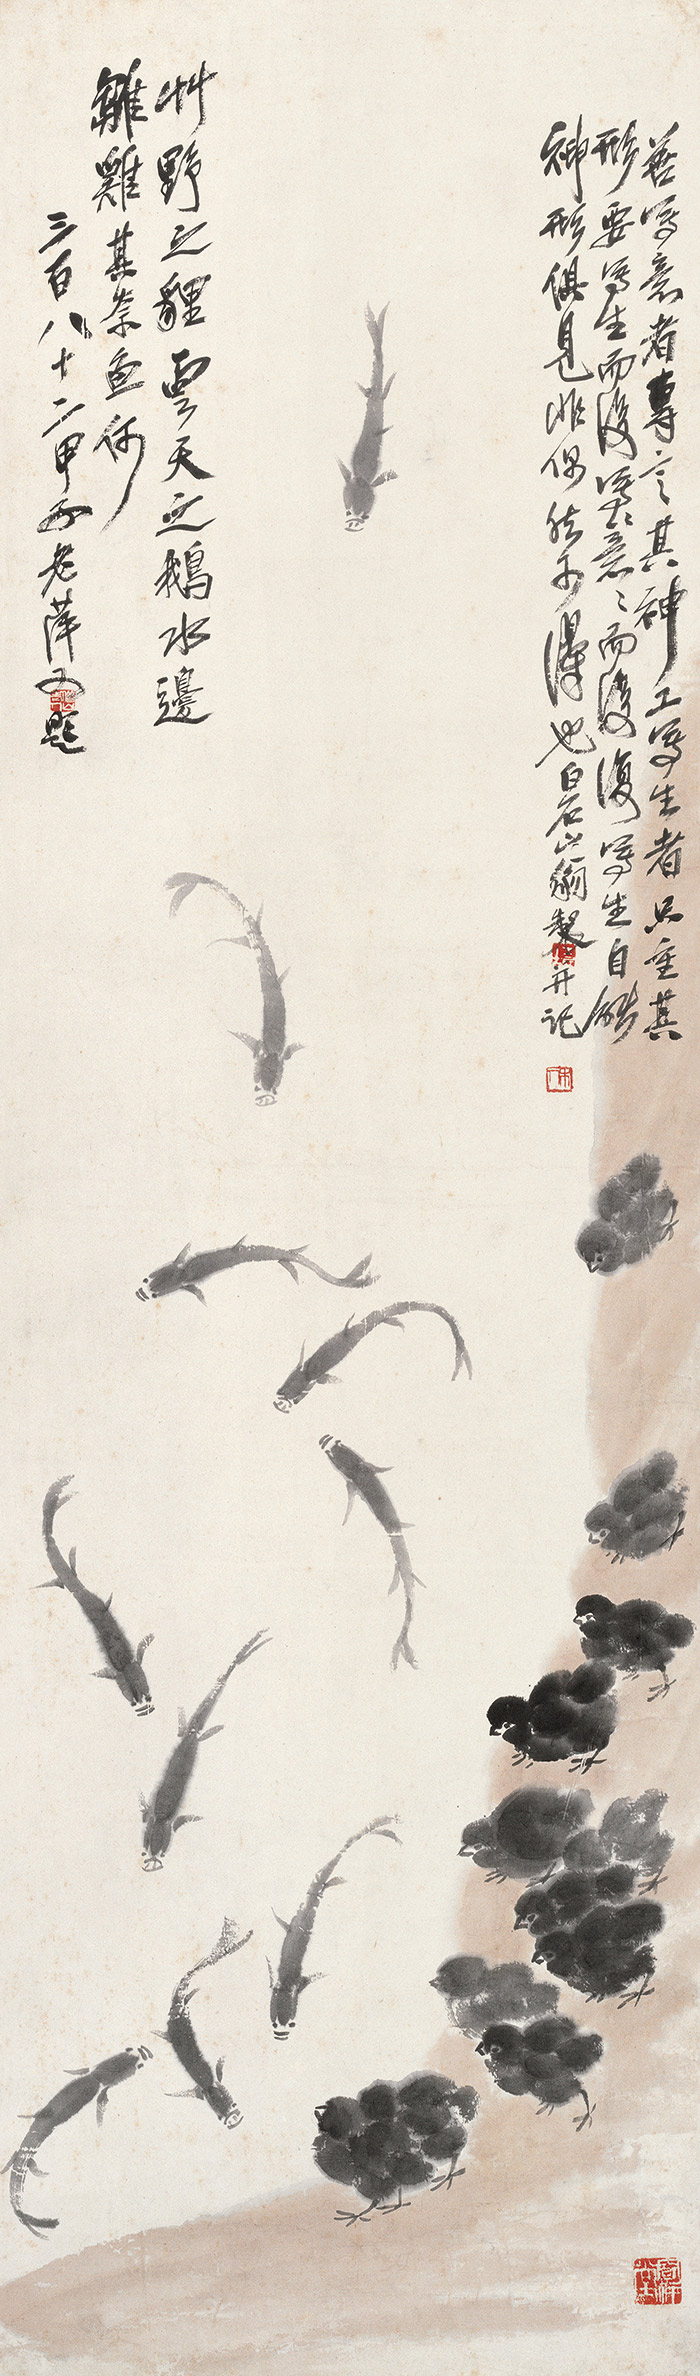 善寫意者專言其神工寫生者只重其
形要寫生而後寫意寫意而後復寫生自能
神形俱見非偶然可得也白石山翁製并記
草野之貍雲天之鵝水邊
雛雞其奈魚何
三百八十二甲子老萍又題